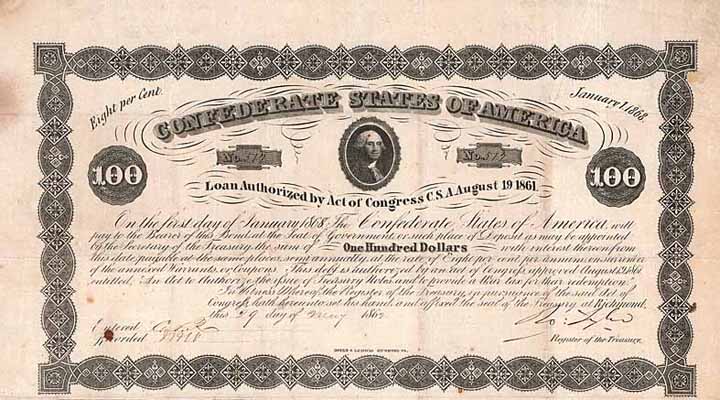 Eight per Cent.
January 1, 1868
CONFEDERATE STATES OF AMERICA
No. 512
No. 512
100
100
Loan Authorized by Act of Congress C.S.A. August 19 1861.
On the first day of January 1868, The Confederate States of America, will
pay to the Bearer of this Bond, at the Seat of Government, or such place of Deposit as may be appointed
by the Secretary of the Treasury, the sum of One Hundred Dollars with interest thereon from
this date, payable at the same places, semi annually, at the rate of Eight per cent per annum, on surrender
of the annexed Warrants or Coupons. This debt is authorized by an Act of Congress approved August 19, 1861
entitled, "An Act to Authorize the issue of Treasury Notes and to provide a War tax for their redemption."
In Witness Whereof, the Register of the Treasury, in pursuance of the said Act of
Congress, hath hereunto set his hand, and affixed the seal of the Treasury, at Richmond,
this 29 day of May 1862
Entered
Recorded
Register of the Treasury.